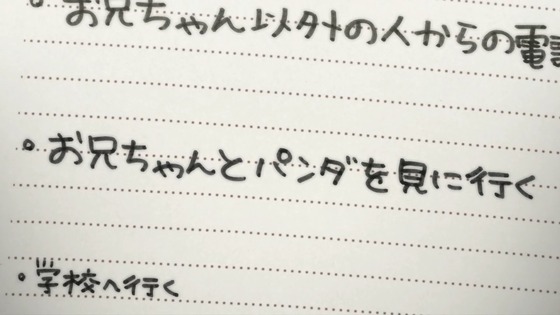 。お兄ちゃん以外の人からの電話
。お兄ちゃんとパンダを見に行く
・学校へ行く